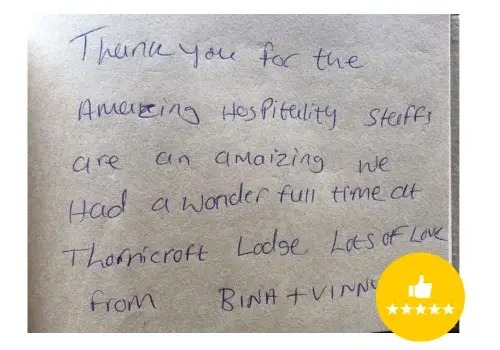 Thank you for the
Amazing Hospitality Staffs
are an amaizing we
Had a wonder full time at
Thornicroft Lodge Lots of Love
from BINA + VINNU